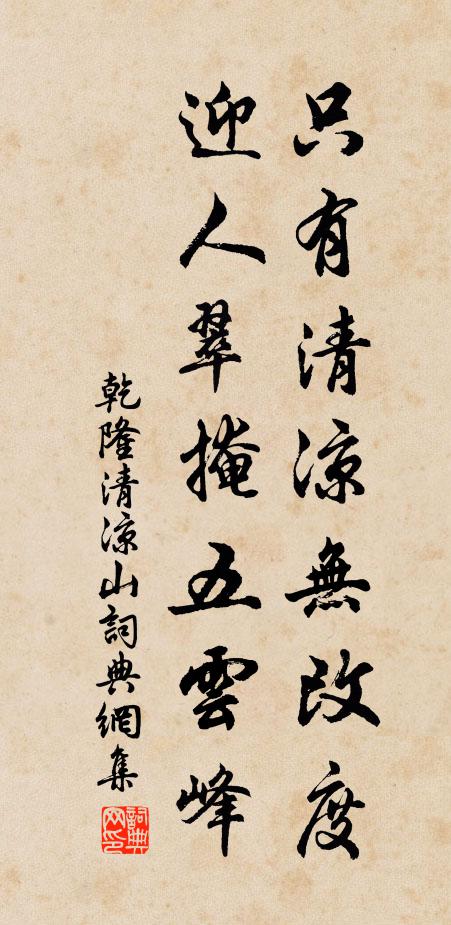 只有清涼無改度
迎人翠掩五雲峰
乾隆清涼山詞典網集
詞典网印